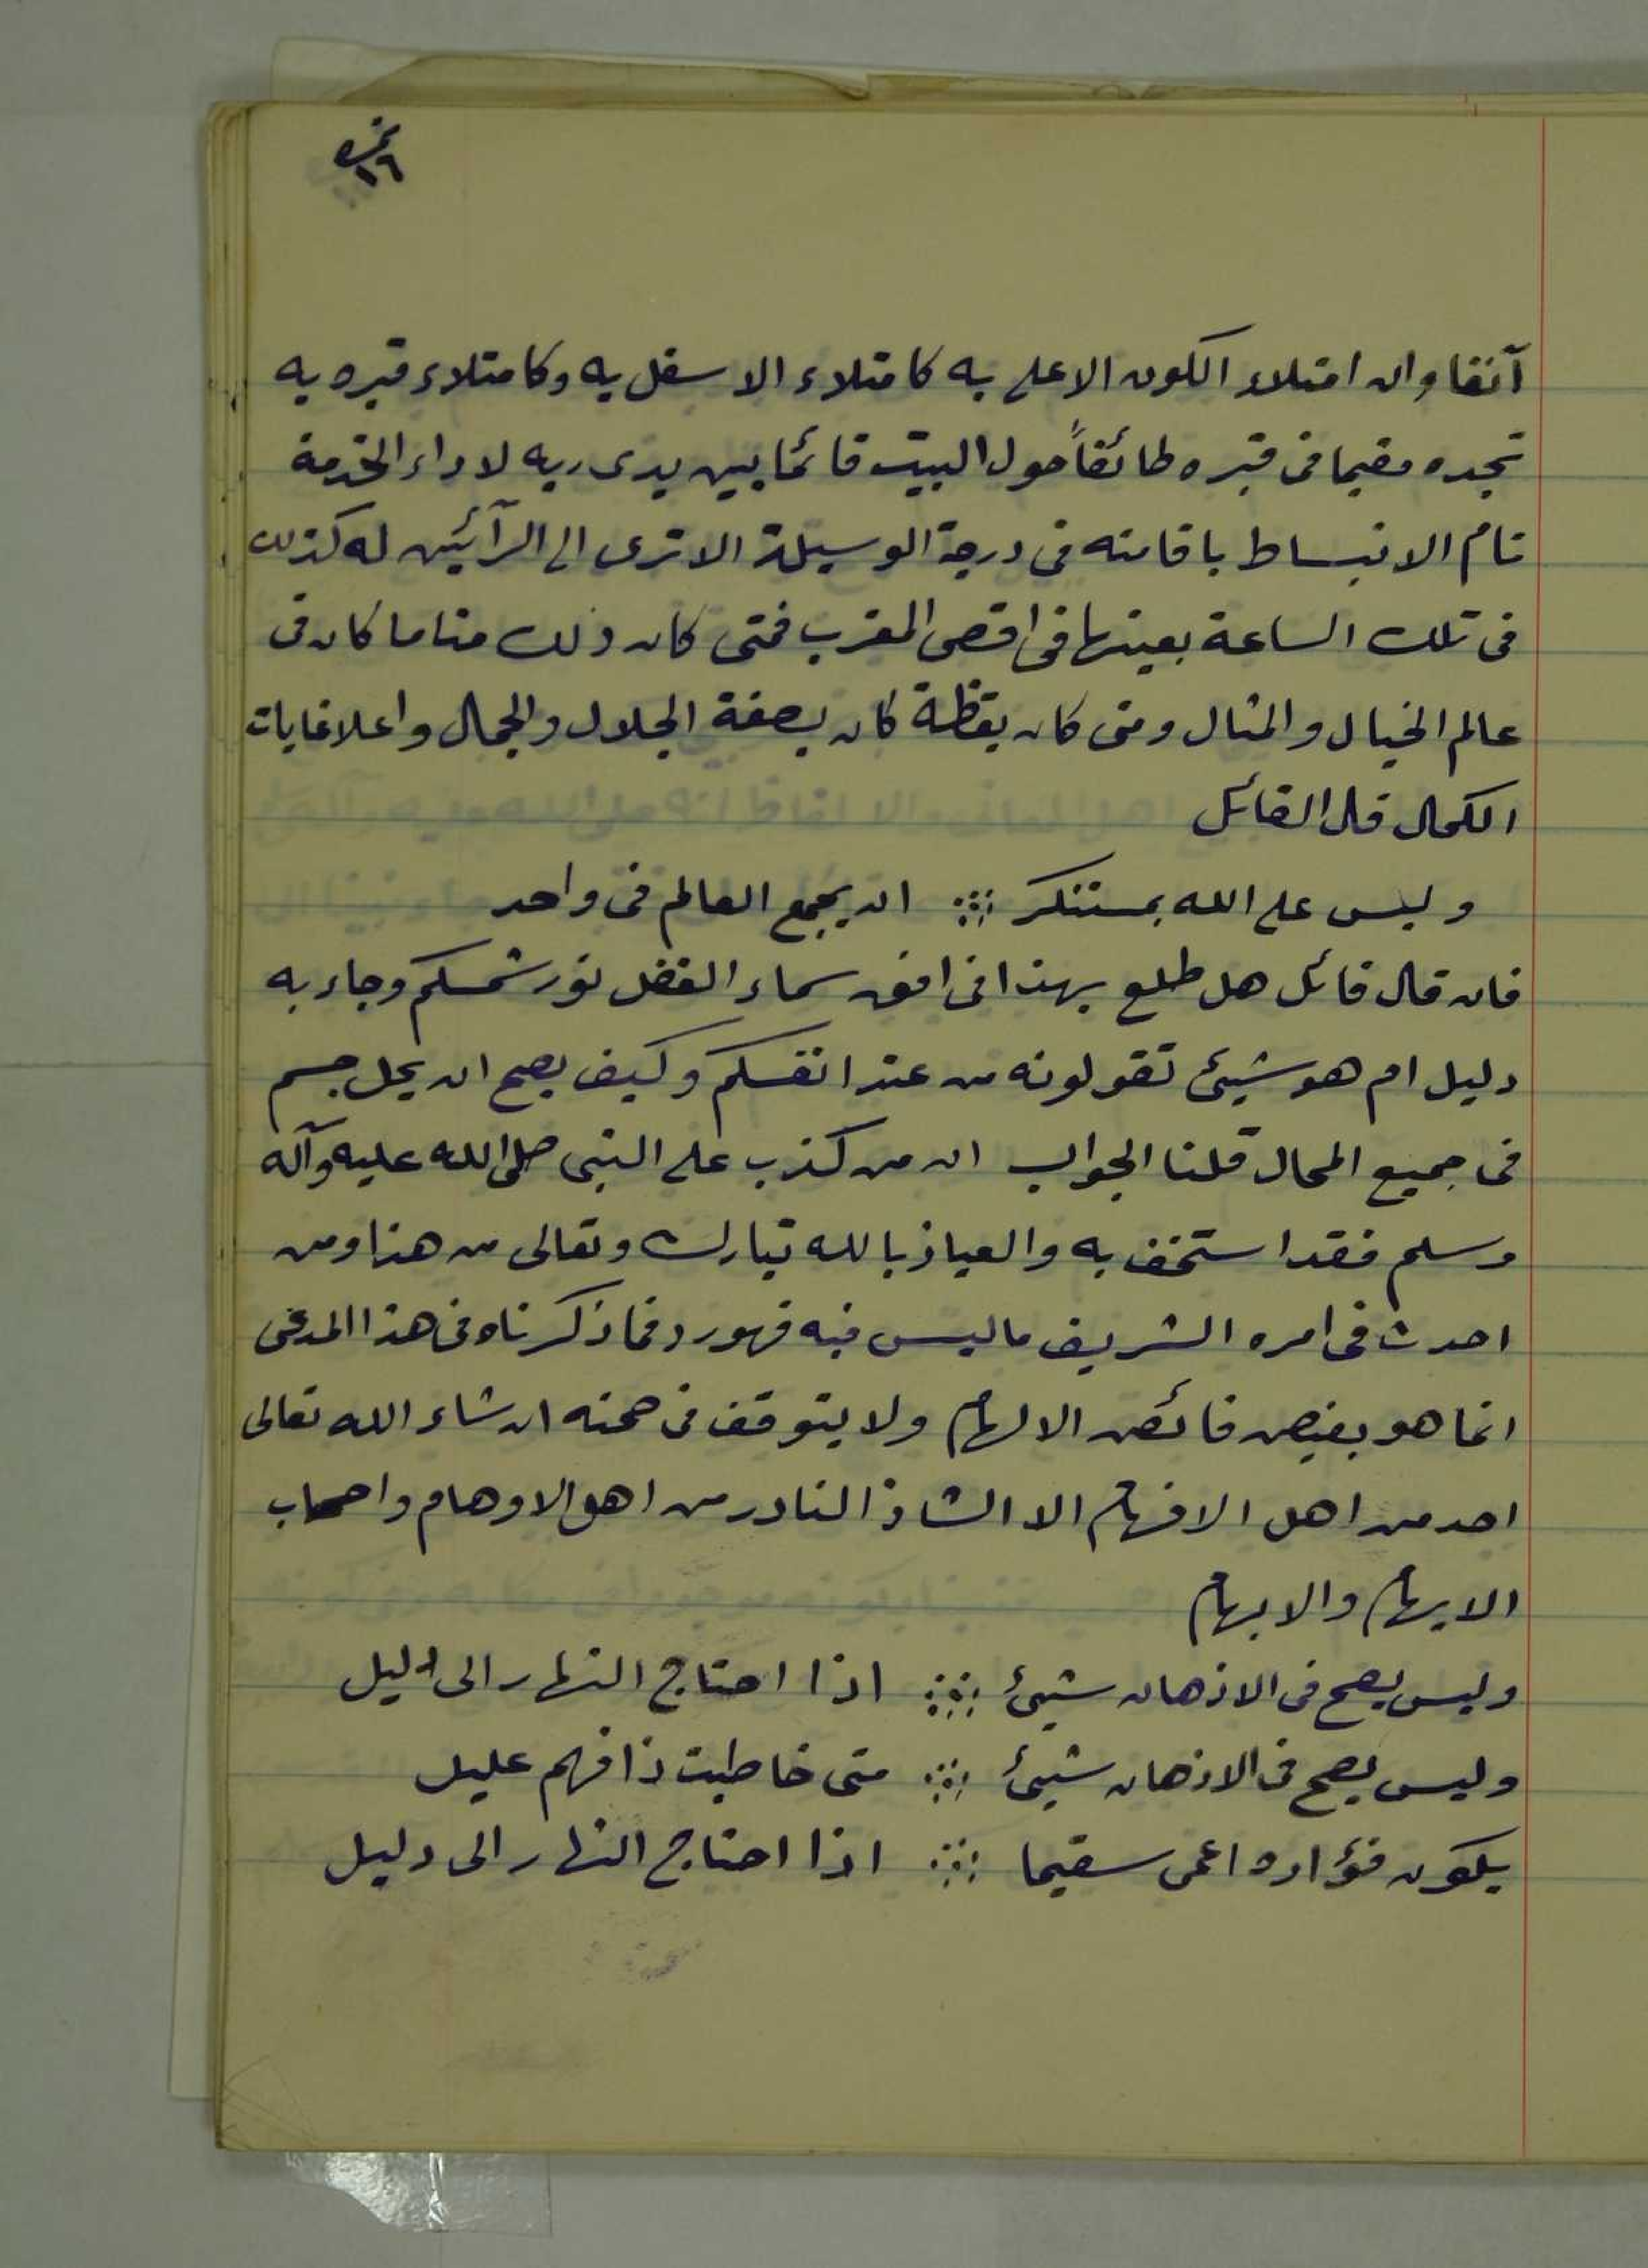 نمرة
١٦
آنفا وان امتلاء الكون الاعلى به كامتلاء الاسفل به وكامتلاء قبره به
تجده مقيما فى قبره طائفاً حول البيت قائما بين يدى ربه لاداء الخدمة
تام الانبساط باقامته فى درجة الوسيلة الا ترى الى الرآئين له كذلك
فى تلك الساعة بعينها فى اقصى المغرب فمتى كان ذلك مناما كان فى
عالم الخيال والمثال ومتى كان يقظة كان بصفة الجلال والجمال واعلا غايات
الكمال قال القائل
وليس على الله بمستنكر ⁘ ان يجمع العالم فى واحد
فان قال قائل هل طلع بهذا فى افق سماء الفضل نور شمسكم وجاء به
دليل ام هو شيئ تقولونه من عند انفسكم وكيف يصح ان يحل جسم
فى جميع المحال قلنا الجواب ان من كذب على النبى صلى الله عليه وآله
وسلم فقد استخف به والعياذ بالله تبارك وتعالى من هذا ومن
احدث فى امره الشريف ما ليس فيه فهو رد فما ذكرناه فى هذا المدعى
انما هو بفيض فائض الالهام ولا يتوقف فى صحته ان شاء الله تعالى
احد من اهل الافهام الا الشاذ النادر من اهل الاوهام واصحاب
الايهام والابهام
وليس يصح فى الاذهان شيئ ⁘ اذا احتاج النهار الى دليل
وليس يصح فى الاذهان شيئ ⁘ متى خاطبت ذا فهم عليل
يكون فؤاده اعمى سقيما ⁘ اذا احتاج النهار الى دليل